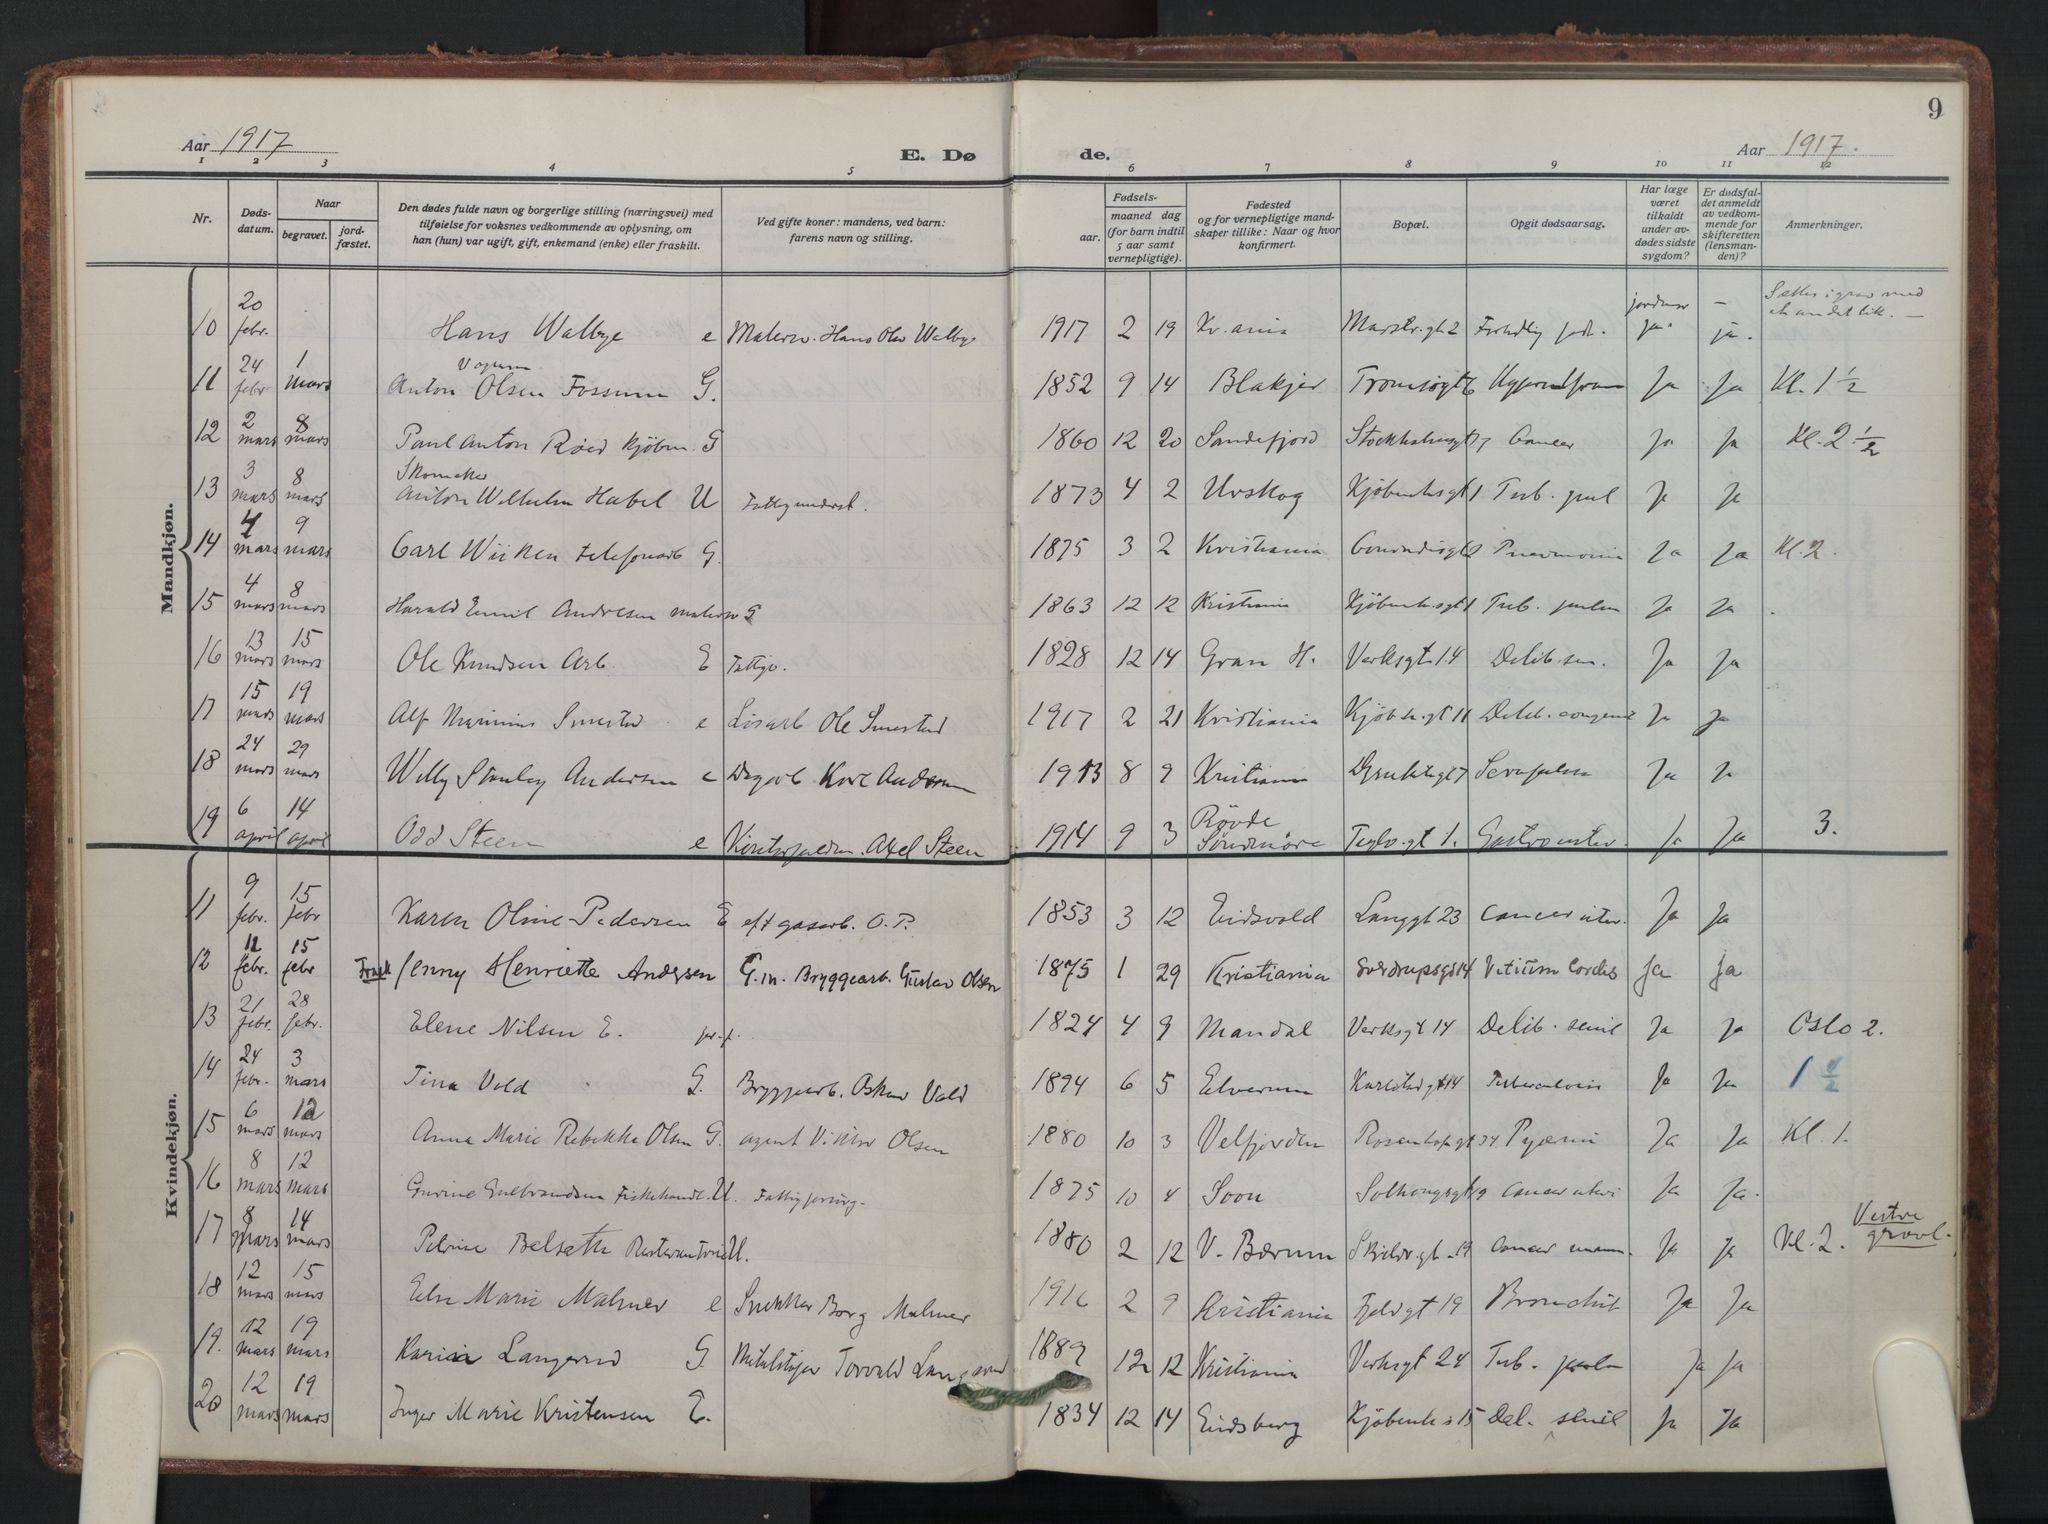 9
Aar 1917
E. Dø
de.
Aar 1917.
1 2 3 4 5 6 7 8 9 10 11 12
Nr.
Døds-
datum.
Naar
begravet.
jord-
fæstet.
Den dødes fulde navn og borgerlige stilling (næringsvei) med
tilføielse for voksnes vedkommende av oplysning, om
han (hun) var ugift, gift, enkemand (enke) eller fraskilt.
Ved gifte koner: mandens, ved barn:
farens navn og stilling.
Fødsels-
aar.
maaned dag
(for barn indtil
5 aar samt
vernepligtige).
Fødested
og for vernepligtige mand-
skaper tillike: Naar og hvor
konfirmert.
Bopæl.
Opgit dødsaarsag.
Har læge
været
tilkaldt
under av-
dødes sidste
sygdom?
Er dødsfal-
det anmeldt
av vedkom-
mende for
skifteretten
(lensman-
den)?
Anmerkninger.
Mandkjøn.
10 20 febr. Hans Walbye e Malersv. Hans Olav Walbye 1917 2 19 Kr.ania 2 jordmor ja. – ja. Sættes i grav med et andet lik. –
11 24 febr. 1 mars Anton Olsen Fossum G. 1852 9 14 Blakjer Tromsøgt 6 Ja Ja Kl. 1 1/2
12 2 mars 8 mars Paul Anton Røed kjøbm. G 1860 12 20 Sandefjord Stockholmsgt 17 Cancer Ja Ja Kl. 2 1/2
13 3 mars 8 mars Skomaker Anton Wilhelm Habel U Fattigunderst. 1873 4 2 Urskog Kjøbenhsgt 1 Tub. pul Ja Ja
14 4 mars 9 mars Carl Wiiken telefonarb G. 1875 3 2 Kristiania Pneumonia Ja Ja Kl. 2.
15 4 mars 8 mars Harald Emil Andresen malersv G 1863 12 12 Kristiania Kjøbenh.sgt 1 Tub. pulm Ja Ja
16 13 mars 15 mars Ole Knudsen Arb. E Fattigv. 1828 12 14 Gran H. Verksgt 14 Debil. sen. Ja Ja
17 15 mars 19 mars Alf Marinius Smestad e Løsarb Ole Smestad 1917 2 21 Kristiania Kjøbh.gt 11 Debil. congenit Ja Ja
18 24 mars 29 mars Willy Stanley Andersen e Dagarb Karl Andersen 1913 8 9 Kristiania Ja Ja
19 6 april 14 april Odd Steen e Axel Steen 1914 9 3 Røvde Søndmøre Teglv.gt 1. Gastroenter. Ja Ja 3.
Kvindekjøn.
11 9 febr. 15 febr Karen Oline Pedersen E eft gasarb. O. P. 1853 3 12 Eidsvold Langgt 23 Cancer uter. Ja Ja
12 12 febr. 15 febr Jenny Henriette Andersen G. m. Bryggearb. Gustav Olsen 1875 1 29 Kristiania Sverdrupsgt 14 Vitium Cordis Ja Ja
13 21 febr. 28 febr. Elene Nilsen E. 1824 4 9 Mandal Verksgt 14 Debil. senil Ja Ja Oslo 2.
14 24 febr. 3 mars Tina Vold G. Bryggearb. Oskar Vold 1894 6 5 Elverum 14 Tuberculosis Ja Ja 1 1/2
15 6 mars 12 mars Anna Marie Rebekka Olsen G. agent Viktor Olsen 1880 10 3 Velfjorden Rosenhofgt 34 Pyæmi Ja Ja Kl. 1.
16 8 mars 12 mars Gurine Gulbrandsen Fiskehandl. U. Fattigforsørg. 1875 10 4 Soon Solhaugsgt 19 Cancer uteri Ja Ja.
17 8 mars 14 mars Petrine Belseth U. 1880 2 12 V. Bærum 19 Cancer mam. Ja Ja Kl. 2. Vestre gravl.
18 12 mars 15 mars Else Marie Malmer e Snekker Borg Malmer 1916 2 9 Kristiania Fjeldgt 19 Bronchit Ja Ja
19. 12 mars 19 mars Karin Langerud G. Metalstøper Torvald Langerud 1889 12 12 Kristiania Verksgt 24 Tub. pulm Ja Ja
20 12 mars 19 mars Inger Marie Kristensen E. 1834 12 14 Eidsberg Kjøbenh.s 15 Deb. senil Ja Ja